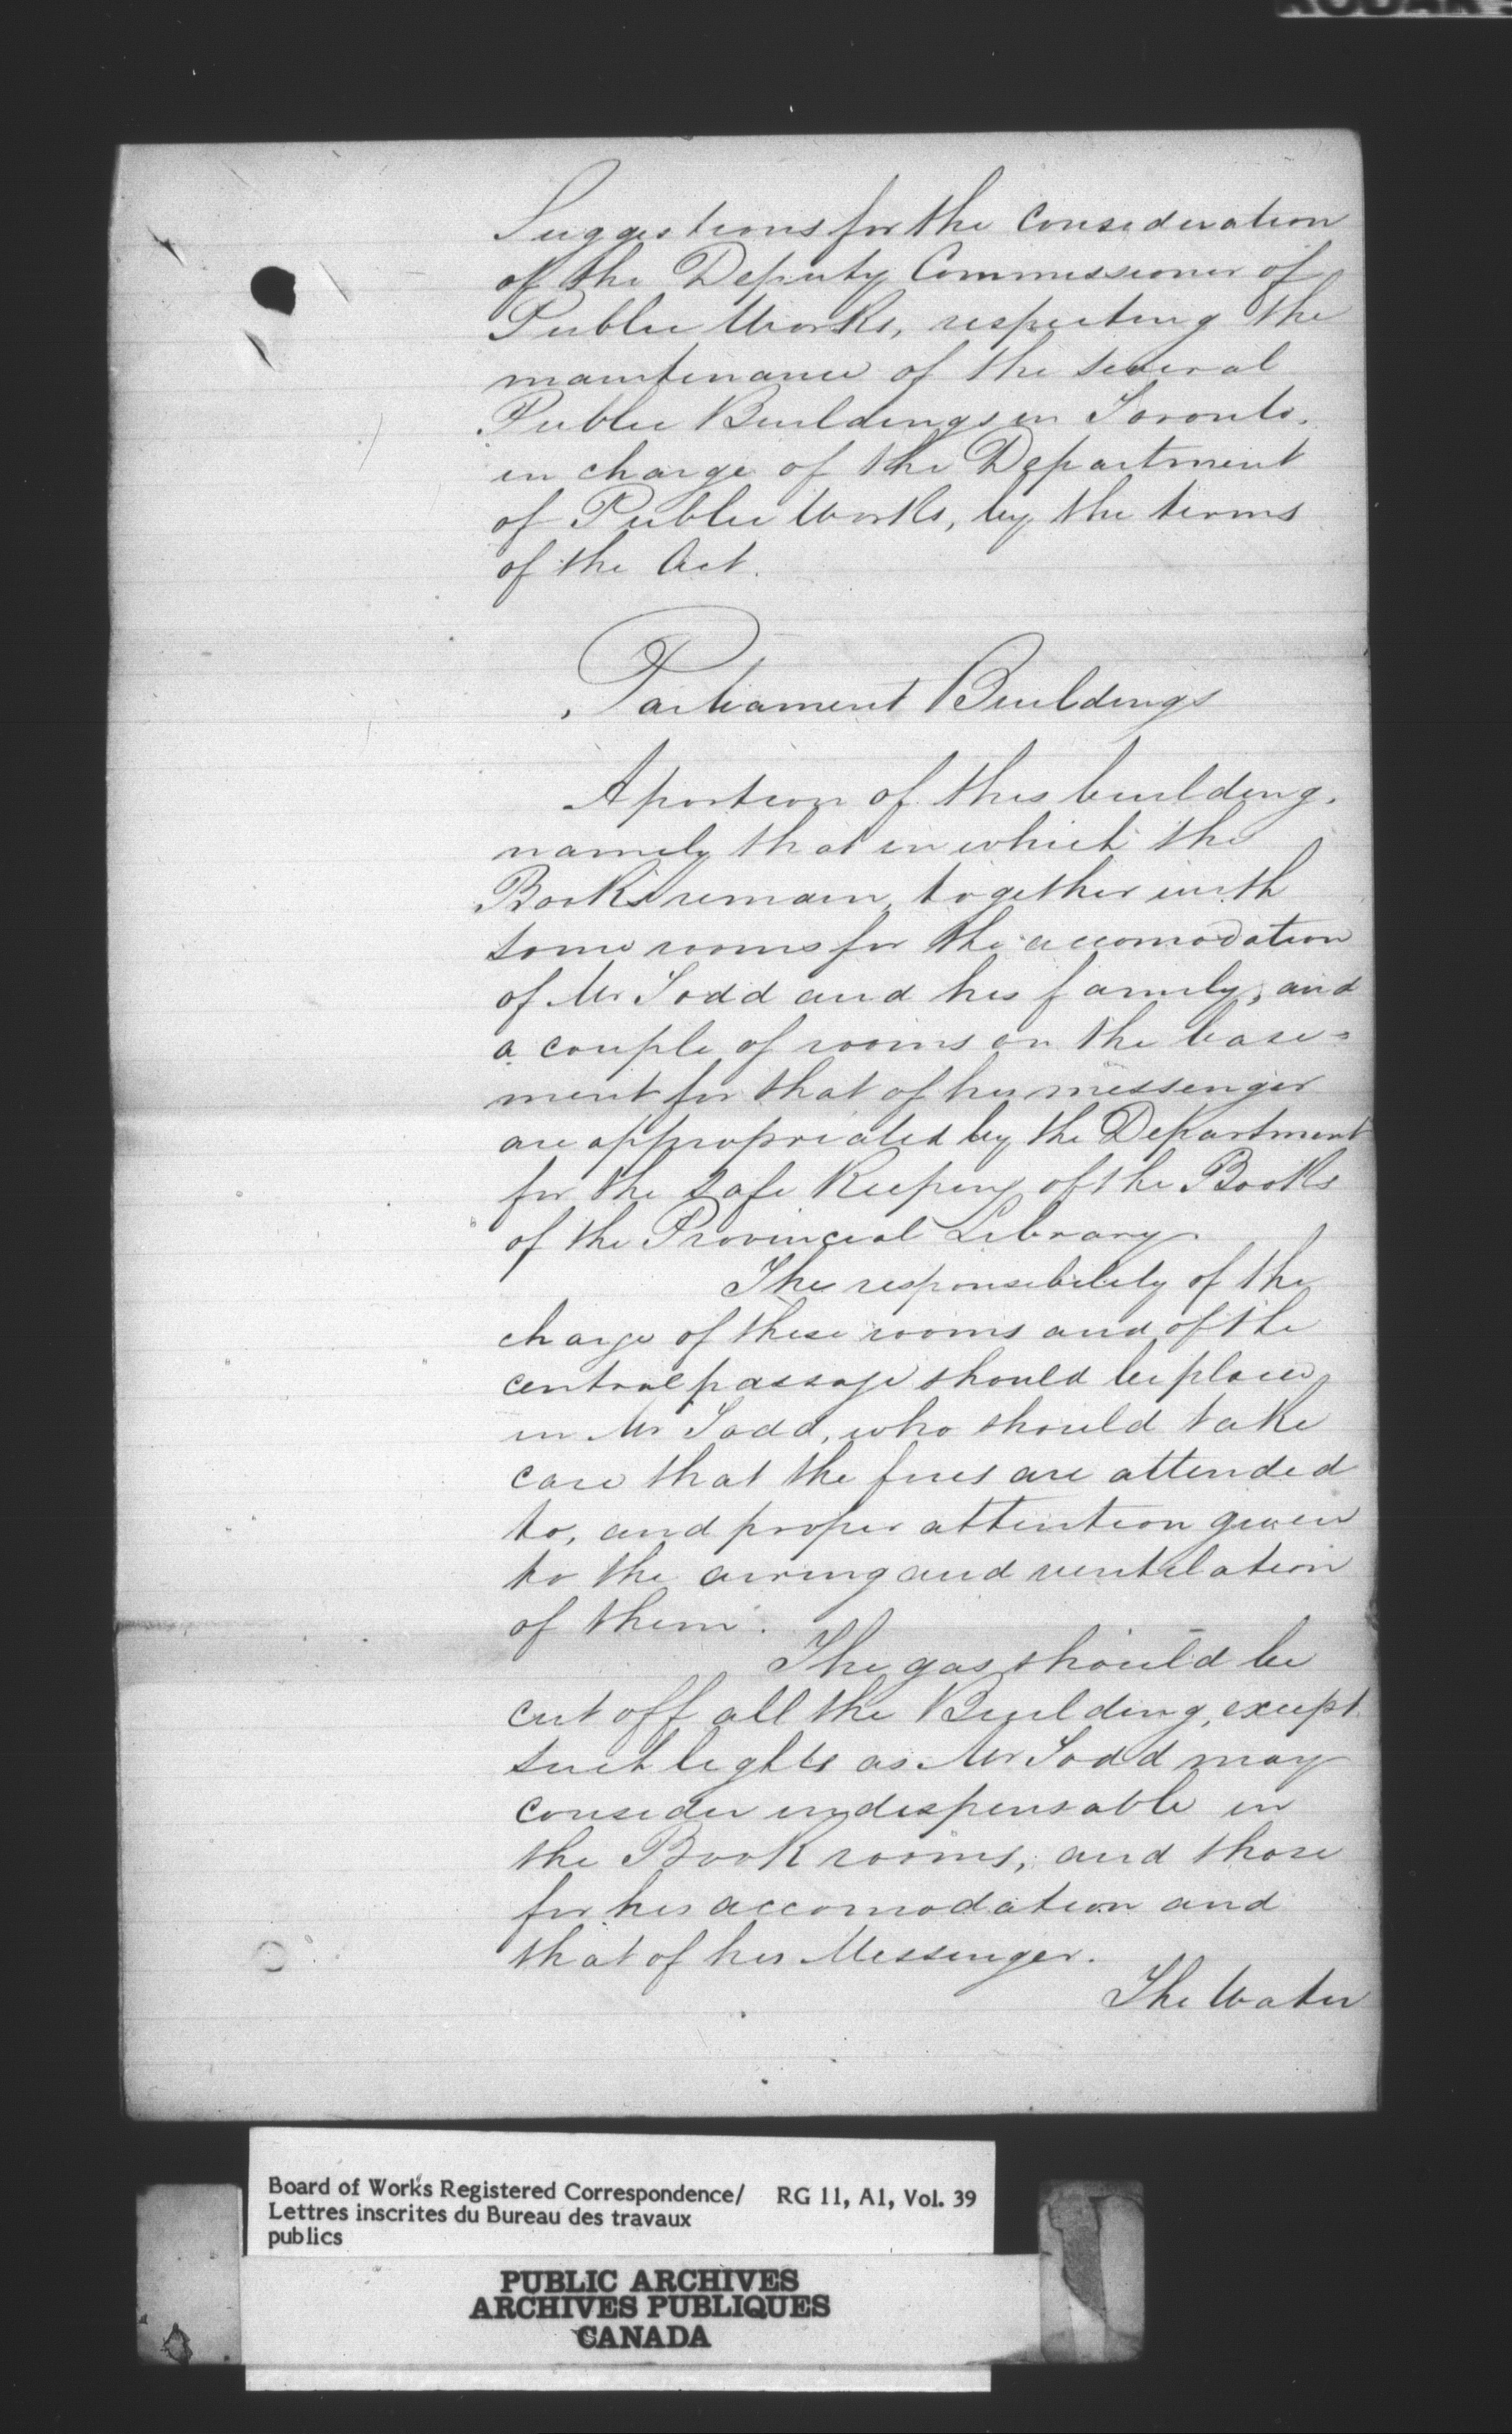 Suggestions for the consideration
of the Deputy Commissioner of
Public Works, respecting the
maintenance of the several
Public Buildings in Toronto,
in charge of the Department
of Public Works, by the terms
of the Act.
Parliament Buildings
A portion of this building,
namely that in which the
Books remain, together with
some rooms for the accomodation
of Mr Todd and his family, and
a couple of rooms on the base=
ment for that of his messenger
are appropriated by the Department
for the safe keeping of the Books
of the Provincial Library.
The responsibility of the
charge of these rooms and of the
central passage should be placed
in Mr Todd, who should take
care that the fires are attended
to, and proper attention given
to the airing and ventilation
of them.
The gas should be
cut off all the Building, except
such lights as Mr Todd may
consider indispensable in
the Book rooms, and those
for his accomodation and
that of his Messenger.
The Water
Board of Works Registered Correspondence/ RG 11, A1, Vol. 39
Lettres inscrites du Bureau des travaux
publics
PUBLIC ARCHIVES
ARCHIVES PUBLIQUES
CANADA